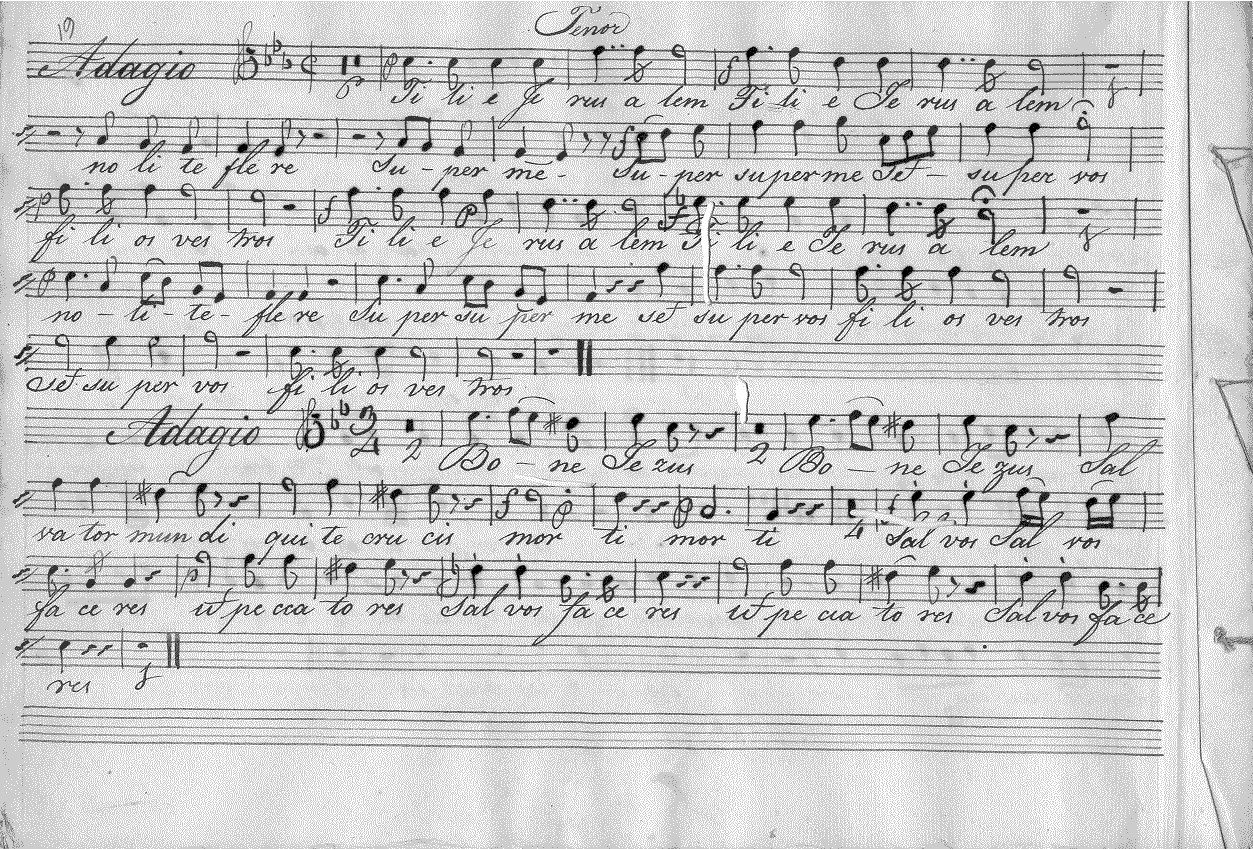 Tenor
Adagio
Fi li e Je rus a lem Fi li e Je rus a lem
no li te fle re Su - per me - Su - per super me Set - super vos
fi li os ves tros Fi li e Je rus a lem Fi li e Je rus a lem
no - li - te - fle re Su per su per me set su per vos fi li os ves tros
Set su per vos fi li os ves tros
Adagio 3 4 2 Bo - ne Je zus 2 Bo - ne Je zus Sal
va tor mun di qui te cru cis mor ti mor ti 4 Sal vos Sal vos
fa ce res ut pe cca to res Sal vos fa ce res ut pe cca to res Sal vos fa ce
res